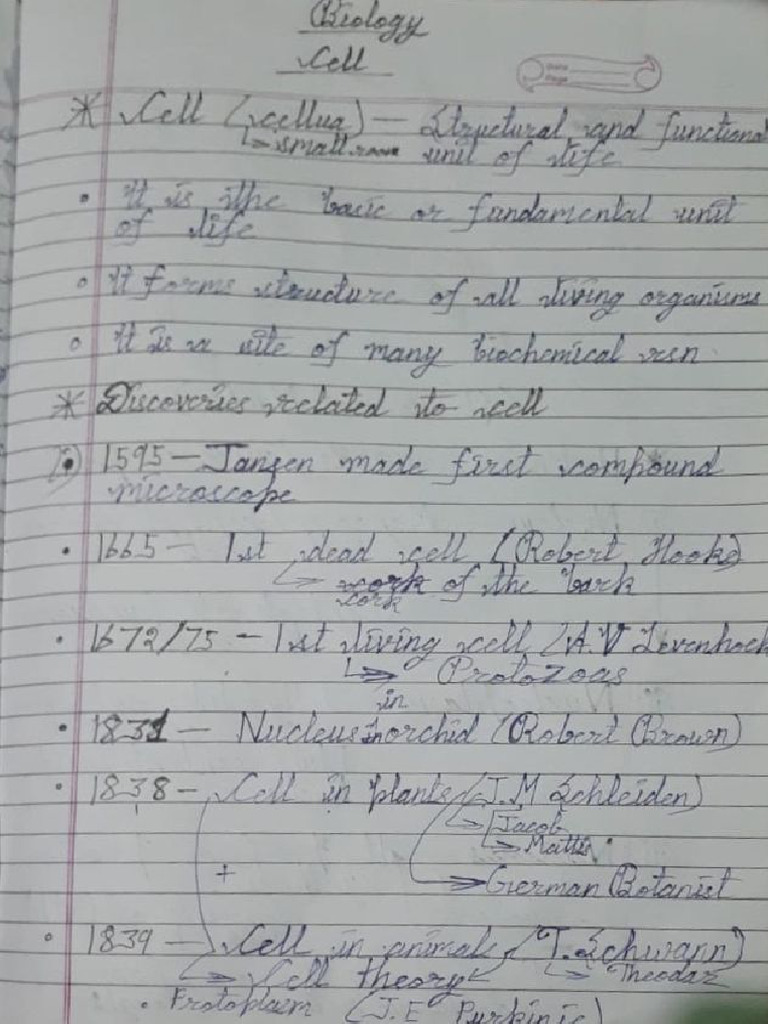 Biology
Cell
* Cell (cellua) — Structural and functional
↳ small room unit of life
• It is the basic or fundamental unit
of life
• It forms structure of all living organisms
• It is a site of many biochemical rxn
* Discoveries related to cell
• 1595 — Jansen made first compound
microscope
• 1665 — 1st dead cell (Robert Hooke)
↳ cork of the bark
cork
• 1672/75 — 1st living cell (A.V Levenhock
↳ Protozoas
in
• 1831 — Nucleus in orchid (Robert Brown)
• 1838 — Cell in plants (J.M Schleiden)
↳ Jacob
↳ Matths
+ → German Botanist
• 1839 — Cell in animals (T. Schwann)
→ Cell theory ↳ Theodar
• Protoplasm (J.E Purkinje)